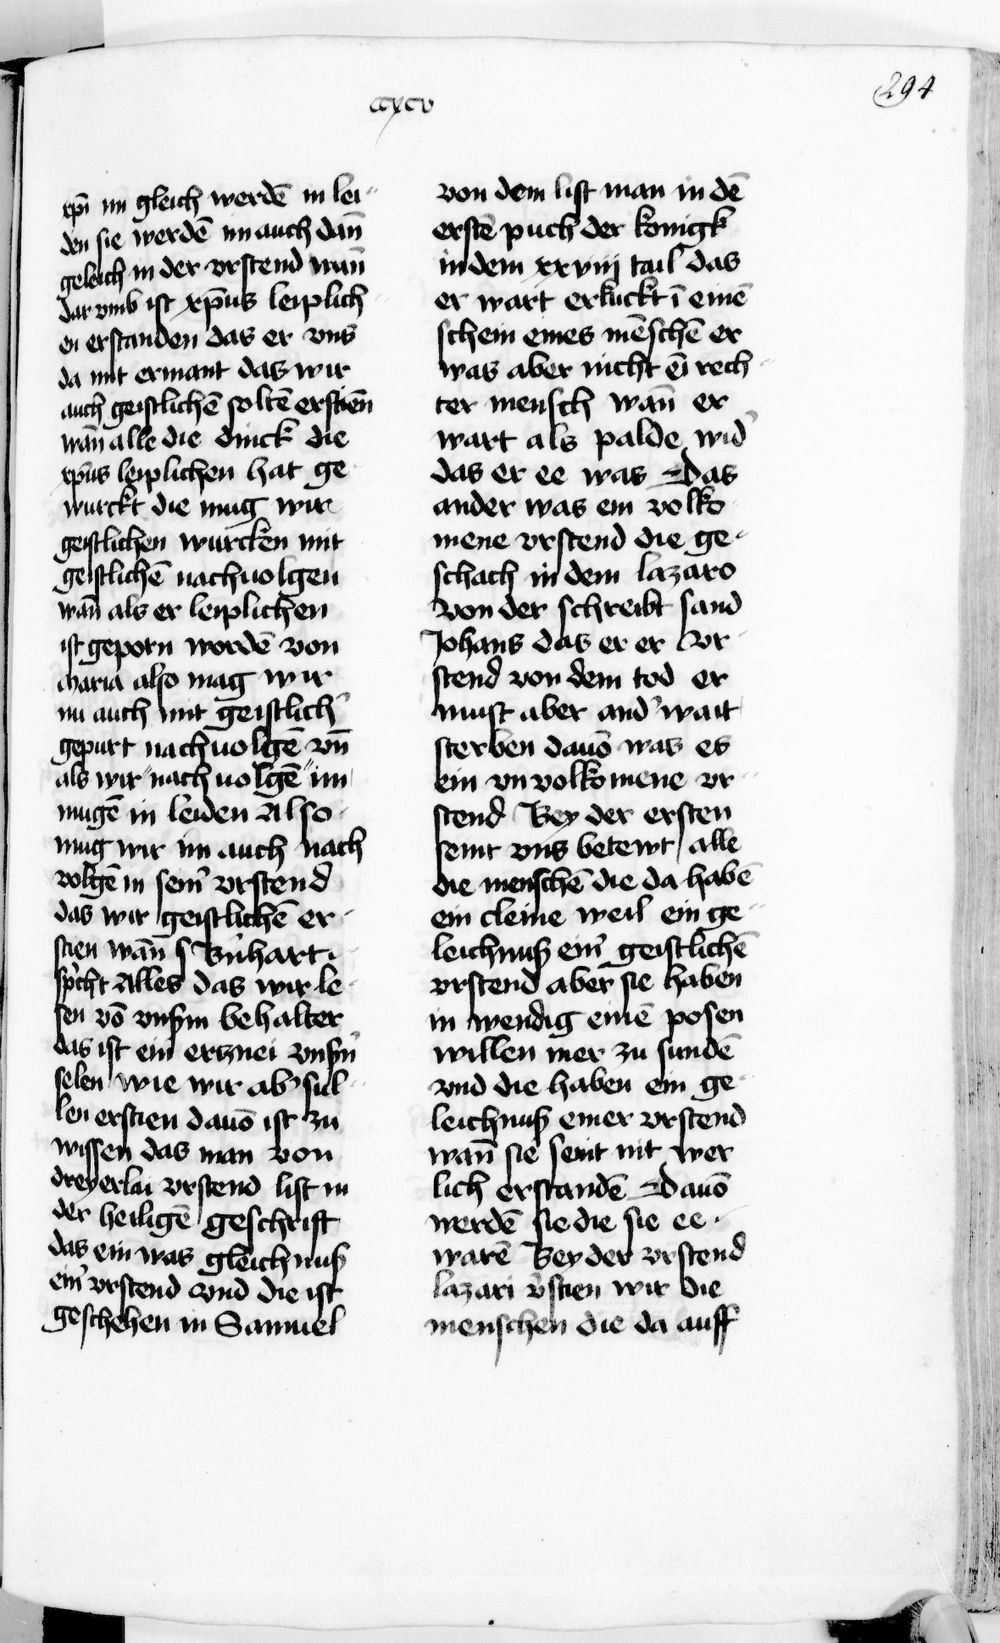 ccxcv
294
xpi im gleich werdē in lei-
den sie werdē im auch dan̄
geleich in der vrstend wan̄
dar vmb ist xp̄us leiplich
en erstanden das er vns
da mit ermant das wir
auch geistlichē soltē erstien̄
wan̄ alle die dinck die
xp̄us leiplichen hat ge
wurckt die mug wir
geistlichen wurcken mit
geistlichē nachuolgen
wan̄ als er leiplichen
ist geporn wordē von
maria also mag wir
im auch mit geistlich'
gepurt nachuolgē vn̄
als wir nach uolgē im
mugē in leiden Also
mug wir im auch nach
volgē in sein' vrstend
das wir geistlichē er-
stien wan̄ s Bn'hart
sp'cht Alles das wir le-
sen vō vnßm behalter
das ist ein ercznei vnßn'
selen wie wir ab' sul-
len erstien dauō ist zu
wissen das man von
dreyerlai vrstend list in
der heiligē geschrift
das ein was gleichnuß
ein' vrstend vnd die ist
geschehen in Samuel
von dem list man in dē
erstē puch der konigk
in dem xxviij tail das
er wart erkuckt ī einē
schein eines mēschē er
was aber nicht eī rech-
ter mensch wan̄ er
wart als palde wid'
das er ee was Das
ander was ein volko
mene vrstend die ge-
schach in dem lazaro
von der schreibt sand
Johans das er er vr-
stend von dem tod er
must aber and'wait
sterben dauō was es
ein vn volkomene vr-
stend Bey der ersten
seint vns betewt alle
die menschē die da habē
ein cleine weil ein ge-
leichnuß ein' geistlichē
vrstend aber sie haben
in wendig einē posen
willen mer zu sundē
vnd die haben ein ge-
leichnuß einer vrstend
wan̄ sie seint nit wer
lich erstandē Dauō
werdē sie die sie ee
warē Bey der vrstend
lazari v'stien wir die
menschen die da auff